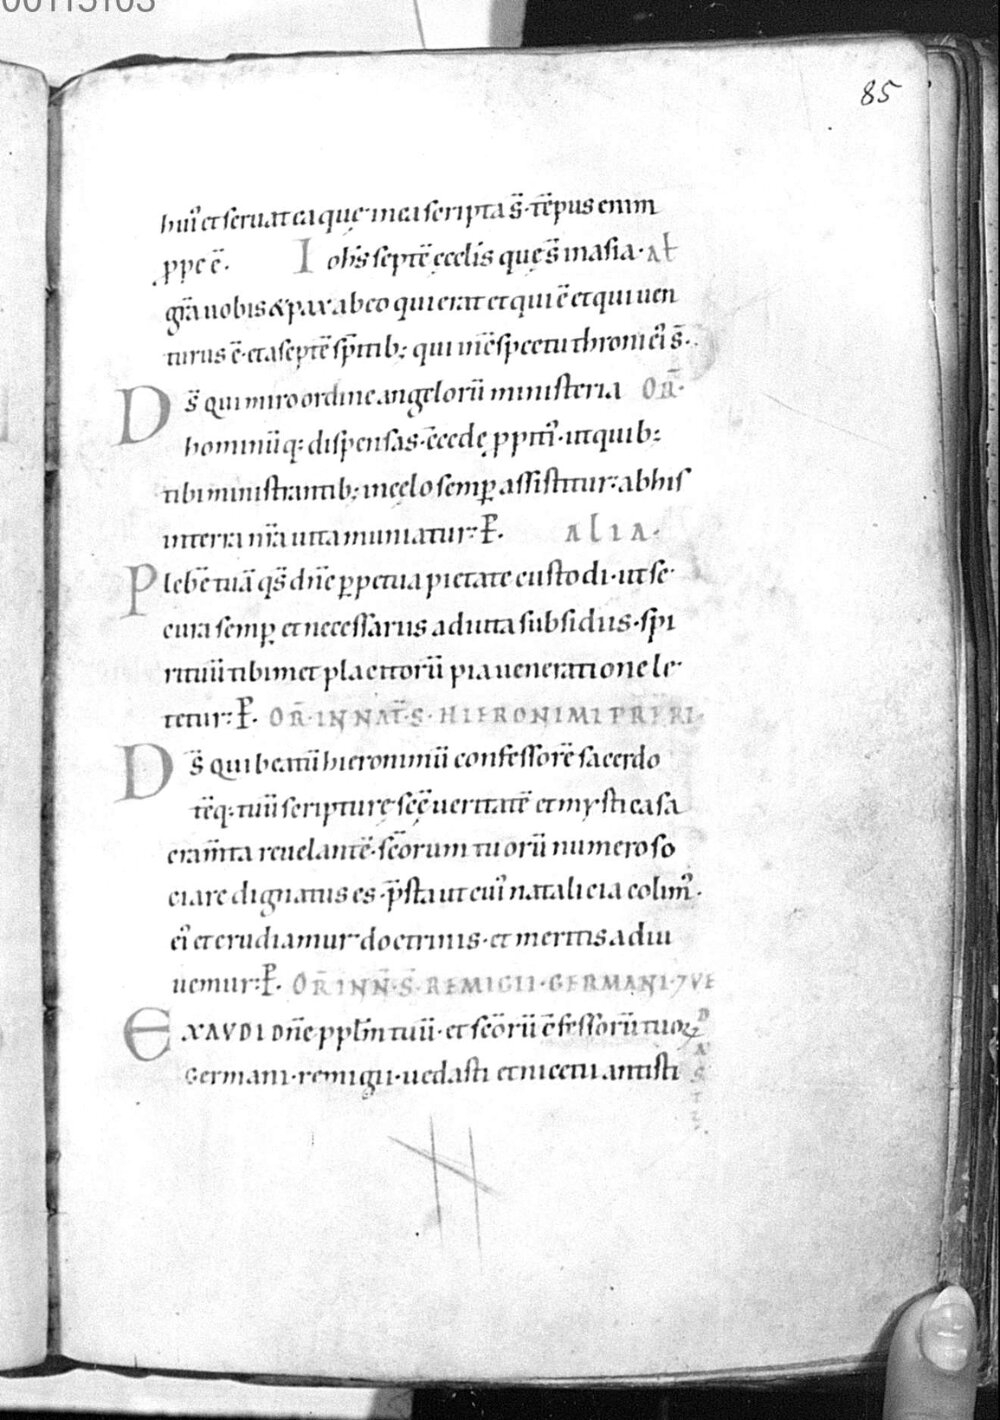 00115103
85
hui᷒ et seruat ea quę in ea scripta s̄. tēpus enim
ꝓpe ē. Iohs̄ septē ęcclīs quę s̄ in asia. al
gr̄a uobis & pax ab eo qui erat et qui ē et qui uen
turus ē. et a septē spītib; qui in c̄spectu throni ei᷒ s̄.
Ds̄ qui miro ordine angelorū ministeria OR̄.
hominūq; dispensas. c̄cede ꝓpiti᷒. ut quib;
tibi ministrantib; in celo semꝑ assistitur: ab his
in terra nr̄a uita muniatur: P̄. ALIA.
Plebē tuā qs̄ dn̄e ꝑpetua pietate custodi. ut se
cura semꝑ et necessariis adiuta subsidiis. spi
rituū tibimet placitorū pia ueneratione le
tetur: P̄. OR̄. IN NAT̄. S. HIERONIMI PRB̄RI.
Ds̄ qui beatū hieronimū confessorē sacerdo
tēq; tuū scripturę scę̄ ueritatē et mystica sa
cram̄ta reuelantē. sc̄orum tuorū numero so
ciare dignatus es. p̄sta ut cui᷒ natalicia colim᷒.
ei᷒ et erudiamur doctrinis. et meritis adiu
uemur: P̄. OR̄ IN N̄. S̄. REMIGII. GERMANI. 7 VE
DASTI.
EXAVDI Dn̄e ppl̄m tuū. et sc̄orū c̄fessorū tuoꝝ
Germani. remigii. uedasti et nicetii antisti